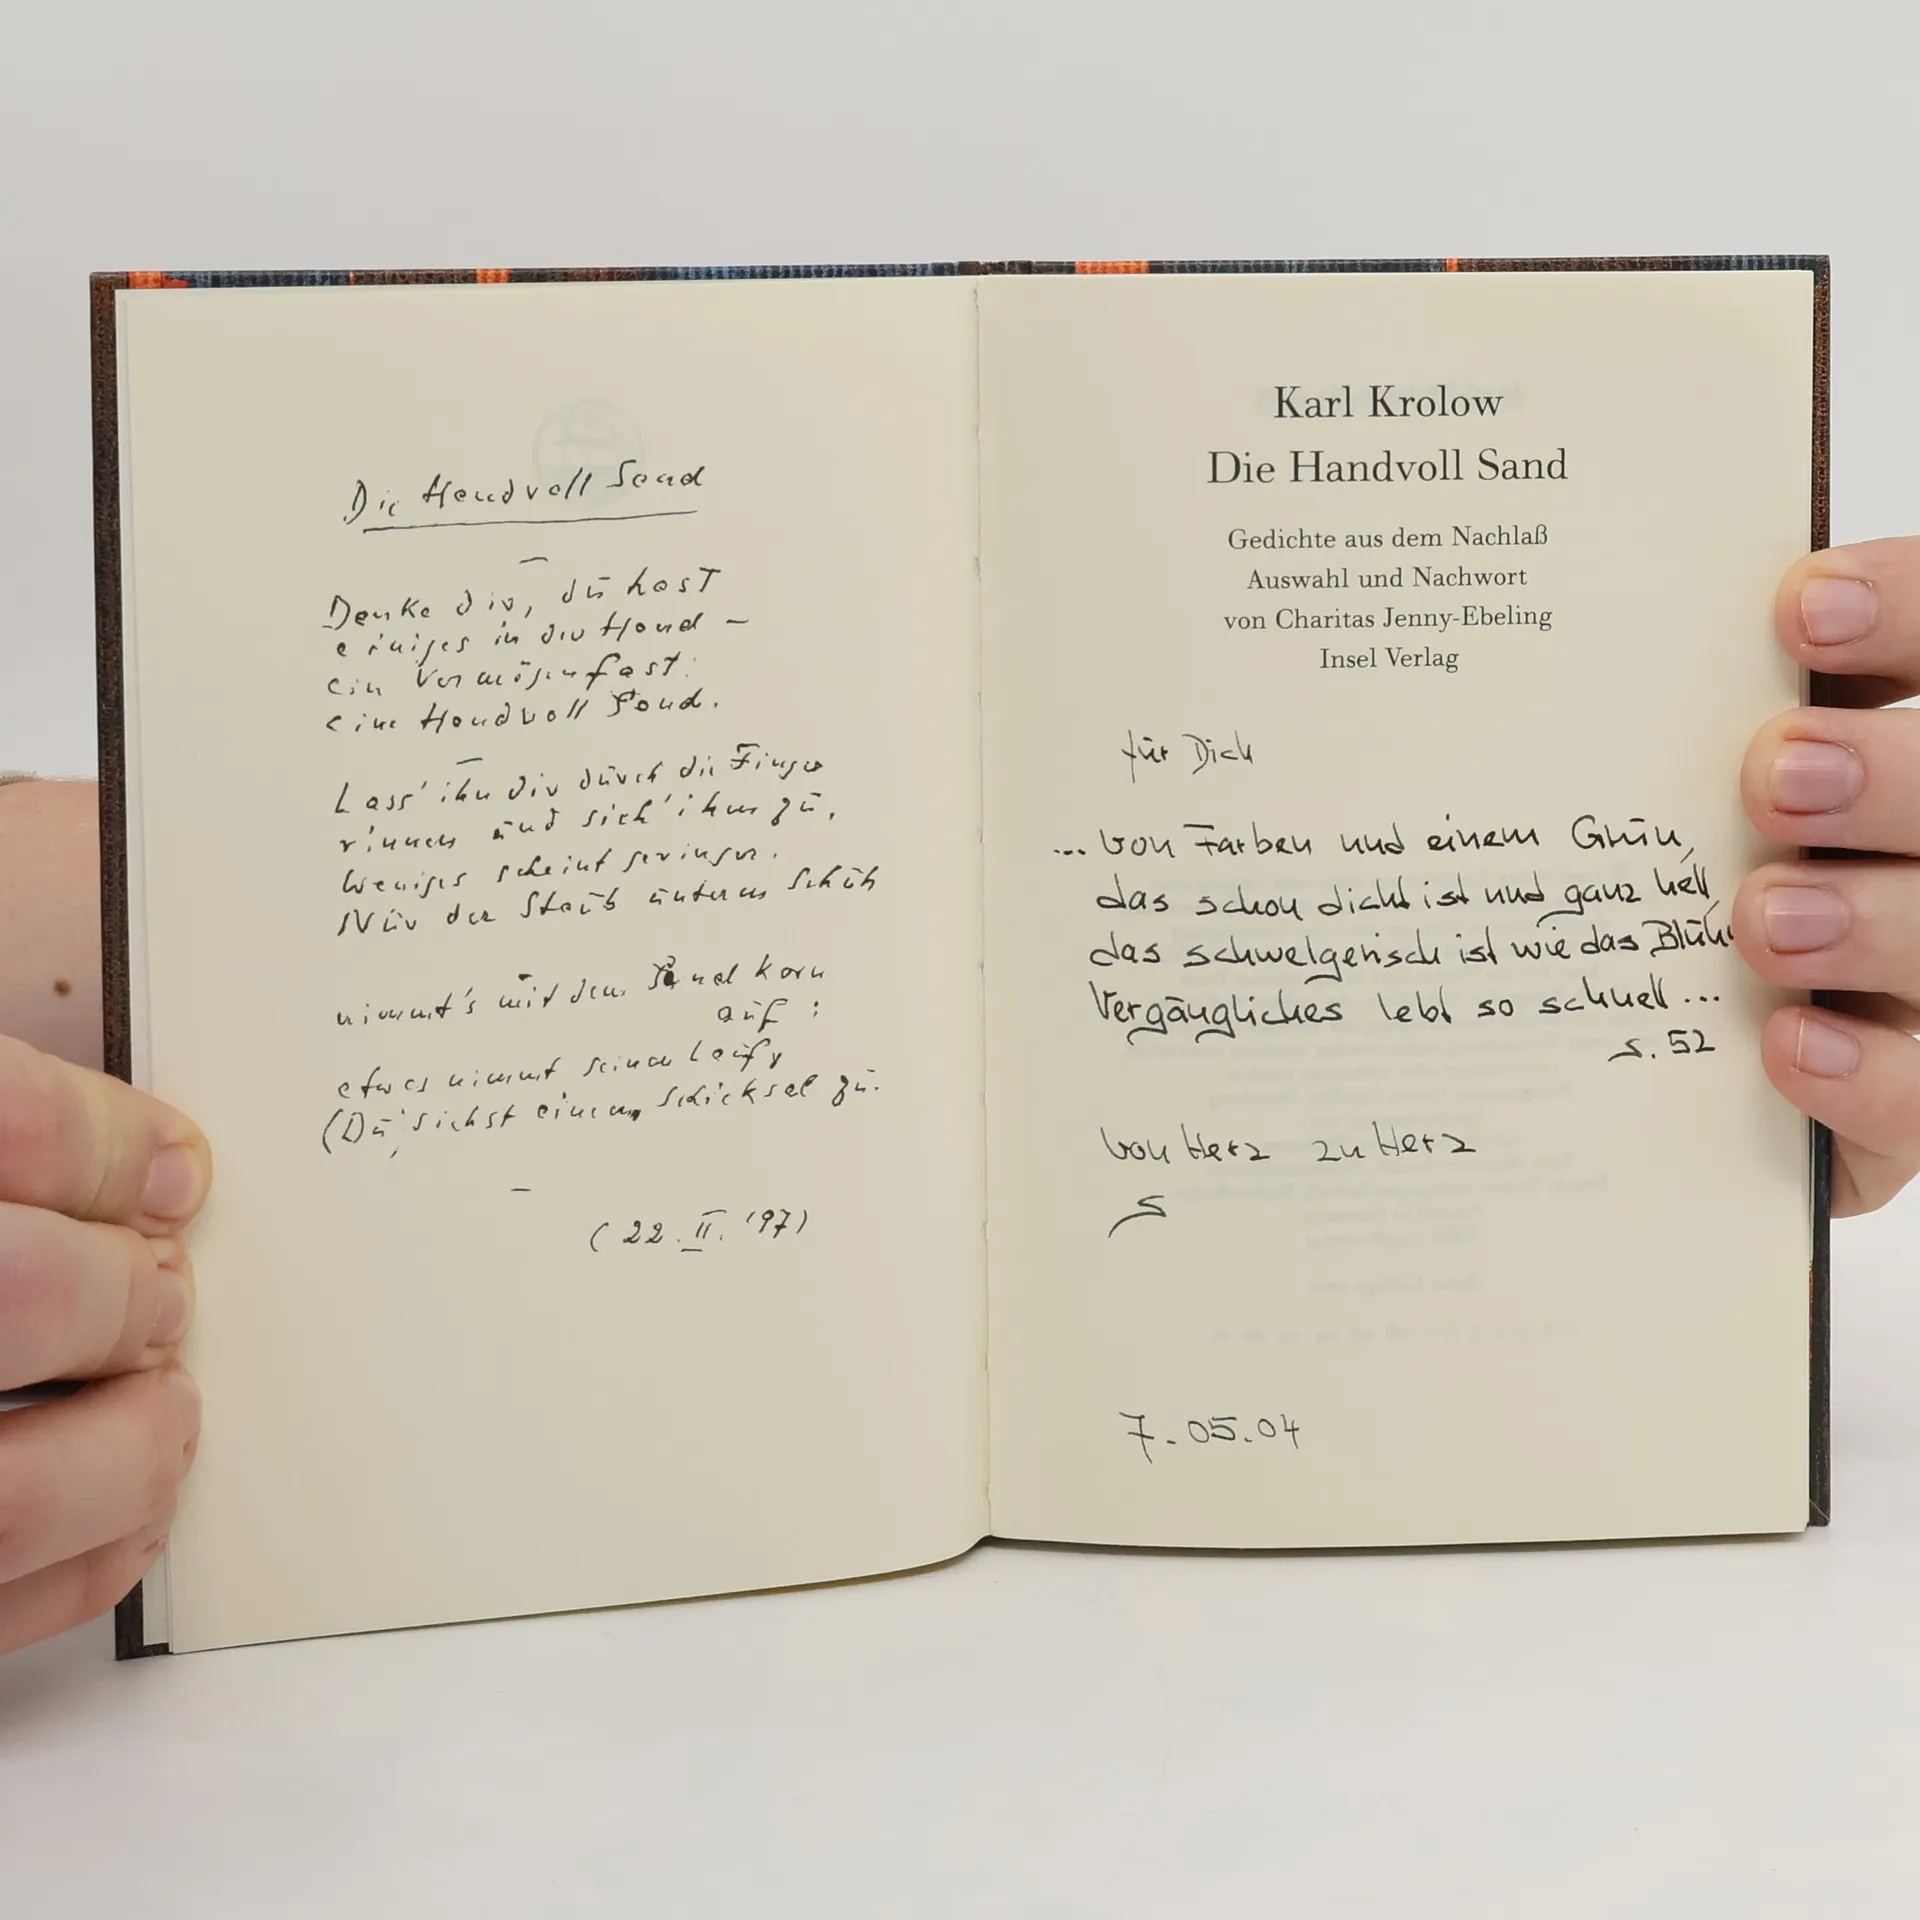 Die Handvoll Sand
Denke dir, du hast
einiges in der Hand –
ein Vermögen fast:
eine Handvoll Sand.
Lass' ihn dir durch die Finger
rinnen und sieh' ihm zu,
Weniges scheint geringer.
Nur der Staub unterm Schuh
nimmt's mit dem Sandkorn
auf:
etwas nimmt seinen Lauf,
(Du siehst einem Schicksal zu.
(22. II. '97)
Karl Krolow
Die Handvoll Sand
Gedichte aus dem Nachlaß
Auswahl und Nachwort
von Charitas Jenny-Ebeling
Insel Verlag
für Dich
... von Farben und einem Grün,
das schon dicht ist und ganz hell,
das schwelgerisch ist wie das
Vergängliches lebt so schnell ...
S. 52
von Herz zu Herz
S
7.05.04